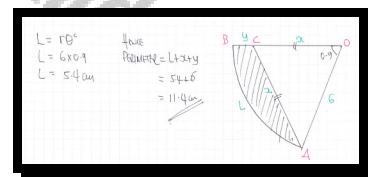 L = rθᶜ
L = 6x0.9
L = 5.4 cm
Hence
Perimeter = L+x+y
= 5.4+6
= 11.4cm
B y C x O
0.9ᶜ
x
L
6
A